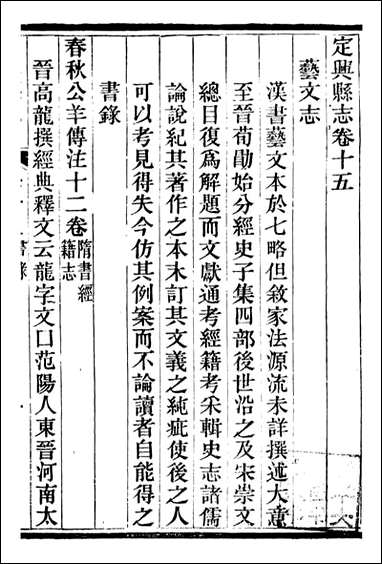 定興縣志卷十五
藝文志
漢書藝文本於七略但敘家法源流未詳撰述大意
至晉荀勖始分經史子集四部後世沿之及宋崇文
總目復爲解題而文獻通考經籍考采輯史志諸儒
論說紀其著作之本末訂其文義之純疵使後之人
可以考見得失今仿其例案而不論讀者自能得之
書錄
春秋公羊傳注十二卷隋書經籍志
晉高龍撰經典釋文云龍字文囗范陽人東晉河南太